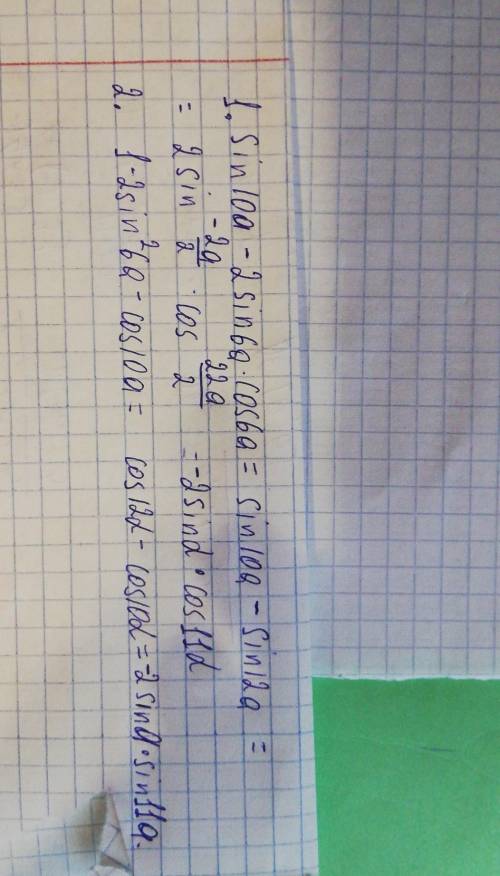 1. sin10a - 2sin6a·cos6a = sin10a - sin12a =
= 2sin -2a/2 · cos 22a/2 = -2sinα · cos11α
2. 1-2sin²6a - cos10a = cos12α - cos10α = -2sina·sin11a.